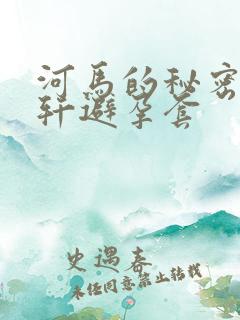 河马的秘密
轩避孕套
史遇春
未经同意禁止转载